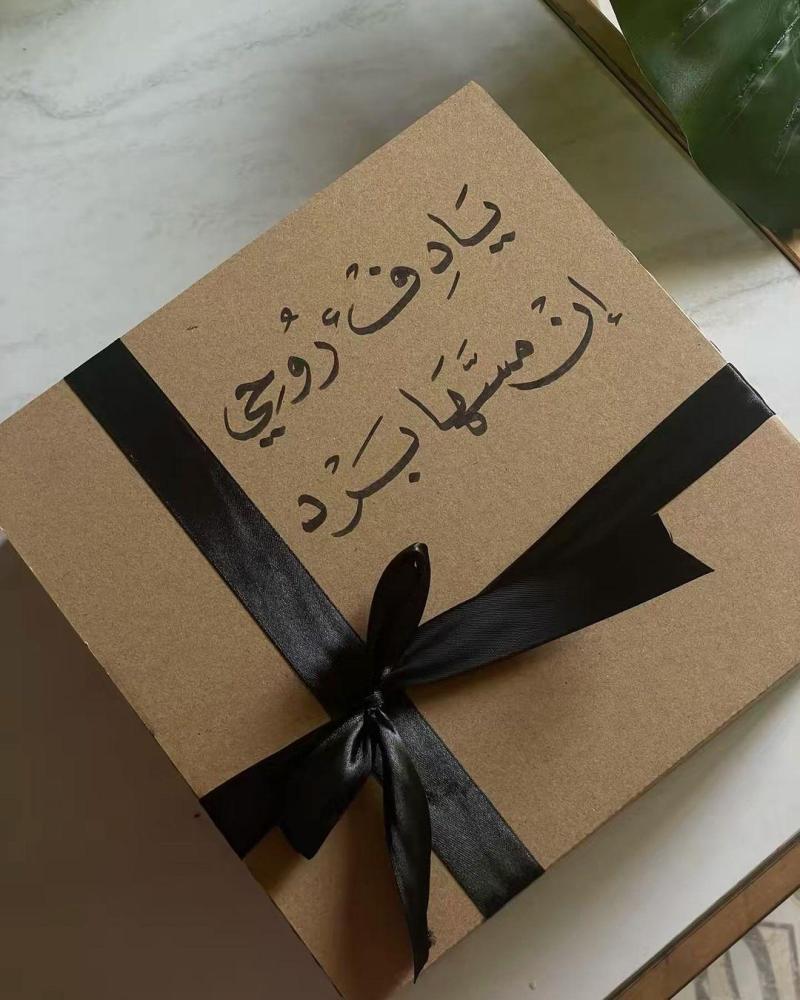 يَا دِفْ ءْ رُوُحِي
إِنْ مَسَّهَا بَرْد